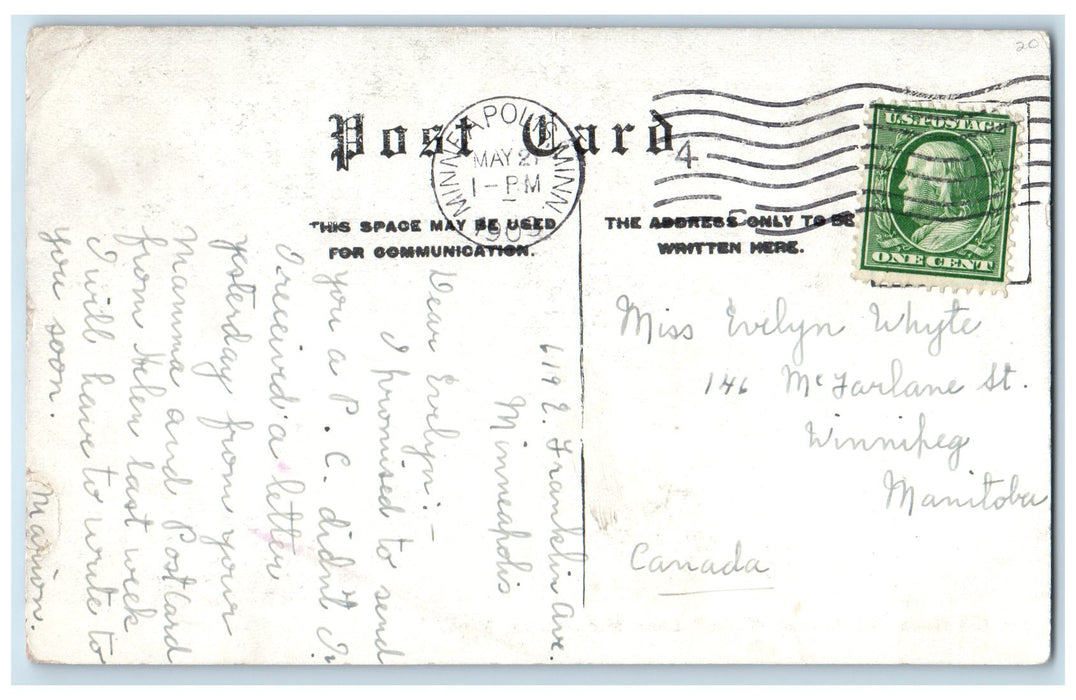 20
Post Card
MINNEAPOLIS, MINN.
MAY 21
1-PM
4
U.S. POSTAGE
ONE CENT
THIS SPACE MAY BE USED
FOR COMMUNICATION.
THE ADDRESS ONLY TO BE
WRITTEN HERE.
619 E. Franklin Ave.
Minneapolis
Dear Evelyn:-
I promised to send
you a P. C. didn't I?
I received a letter
yesterday from your
Mamma and Postcard
from Helen last week
I will have to write to
you soon.
Marion.
Miss Evelyn Whyte
146 McFarlane St.
Winnipeg
Manitoba
Canada